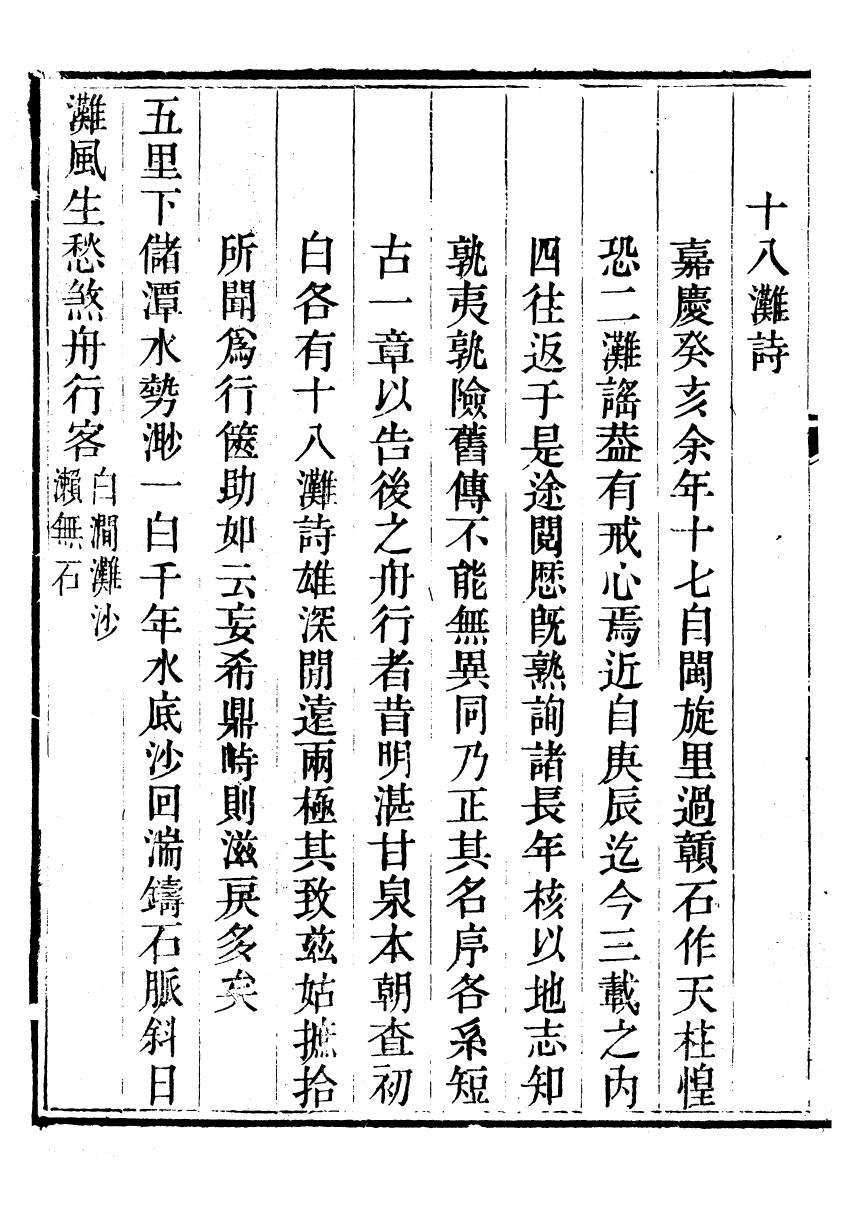 十八灘詩
嘉慶癸亥余年十七自閩旋里過贛石作天柱惶
恐二灘謠葢有戒心焉近自庚辰迄今三載之內
四往返于是途閱歷旣熟詢諸長年核以地志知
孰夷孰險舊傳不能無異同乃正其名序各系短
古一章以告後之舟行者昔明湛甘泉本朝查初
白各有十八灘詩雄深閒遠兩極其致玆姑摭拾
所聞爲行篋助如云妄希鼎時則滋戾多矣
五里下儲潭水勢渺一白千年水底沙回湍鑄石脈斜日
灘風生愁煞舟行客白澗灘沙
瀨無石